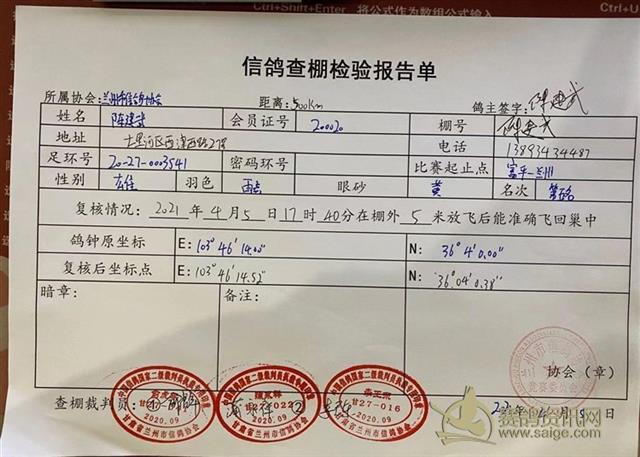 Ctrl+Shift+Enter 将公式作为数组公式输入
信鸽查棚检验报告单
所属协会:兰州市信鸽协会 距离:500Km 鸽主签字:陈建武
姓名 陈建武 会员证号 20020 棚号
地址 七里河区西津西路 电话 13893434487
足环号 20-27-0003541 密码环号 比赛起止点 富平—兰州
性别 羽色 雨点 眼砂 黄 名次
复核情况:2021年4月5日17时40分在棚外5米放飞后能准确飞回巢中
鸽钟原坐标 E:103°46′14.00″ N:36°4′0.00″
复核后坐标点 E:103°46′14.52″ N:36°04′0.38″
暗章: 备注:
协会(章)
查棚裁判员:
2020.09 2020.09 27-016 2020.09
甘肃省兰州市信鸽协会 甘肃省兰州市信鸽协会 甘肃省兰州市信鸽协会
2021年4月5日
赛鸽资讯网
www.saige.com